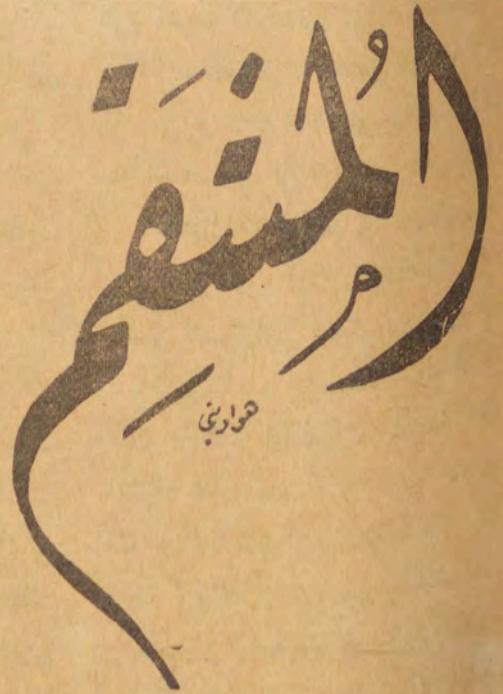 المُنتَقِم
هواويني